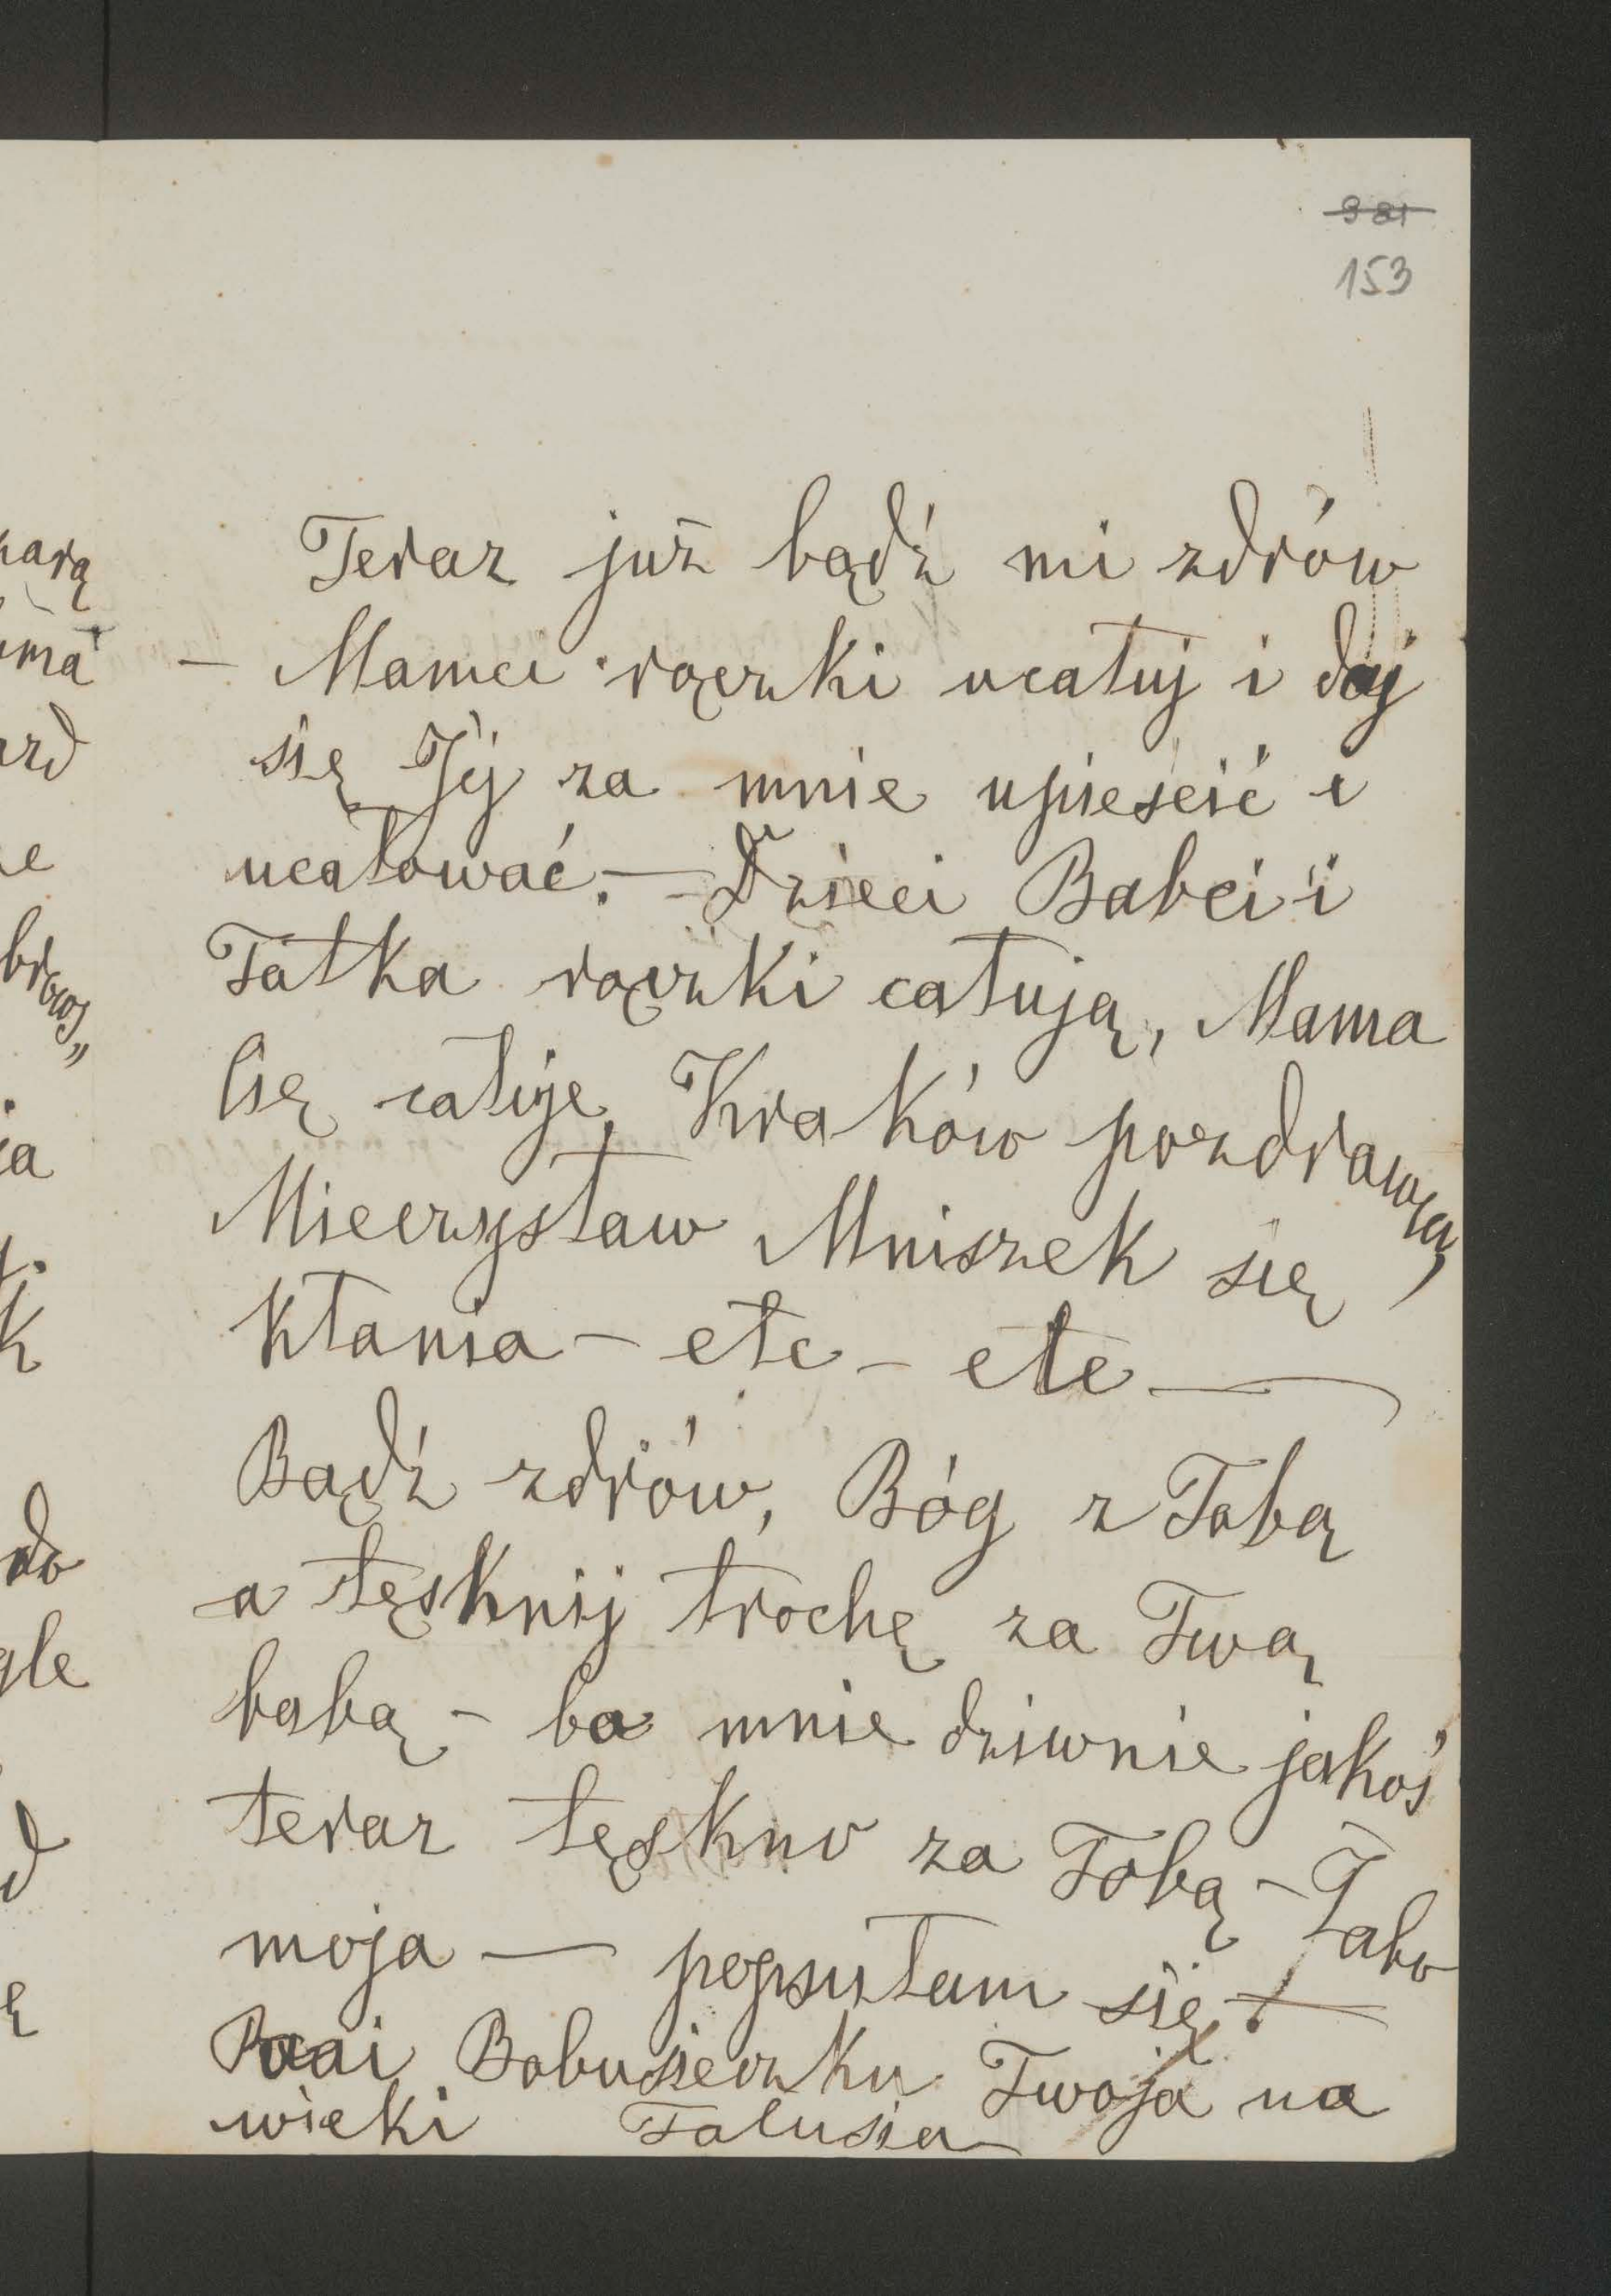 981
153
Teraz już bądź mi zdrów
— Mamci rączki ucałuj i daj
się Jéj za mnie upieścić i
ucałować. — Dzieci Babci i
Tatka rączki całują, Mama
Cię całuje, Kraków pozdrawia,
Mieczysław Mniszek się
kłania — etc — etc —
Bądź zdrów, Bóg z Tobą
a tęsknij trochę za Twą
babą — bo mnie dziwnie jakoś
teraz tęskno za Tobą — Żabo
moja — popsułam się! —
Buzi Bobusieczku Twoja na
wieki Talusia